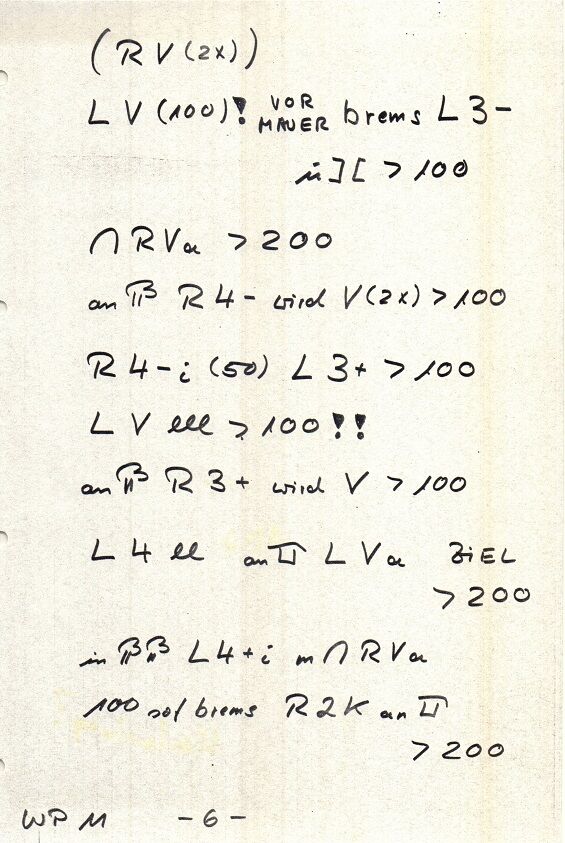 (RV(2x))
LV(100)! VOR MAUER brems L3-
ü][ > 100
∩ RVa > 200
an R4- wird V(2x) > 100
R4-i (50) L3+ > 100
LV lll > 100!!
an R3+ wird V > 100
L4 ll an LVa ZiEL
> 200
in L4+i m ∩ RVa
100 sof brems R2K an
> 200
WP 11 -6-